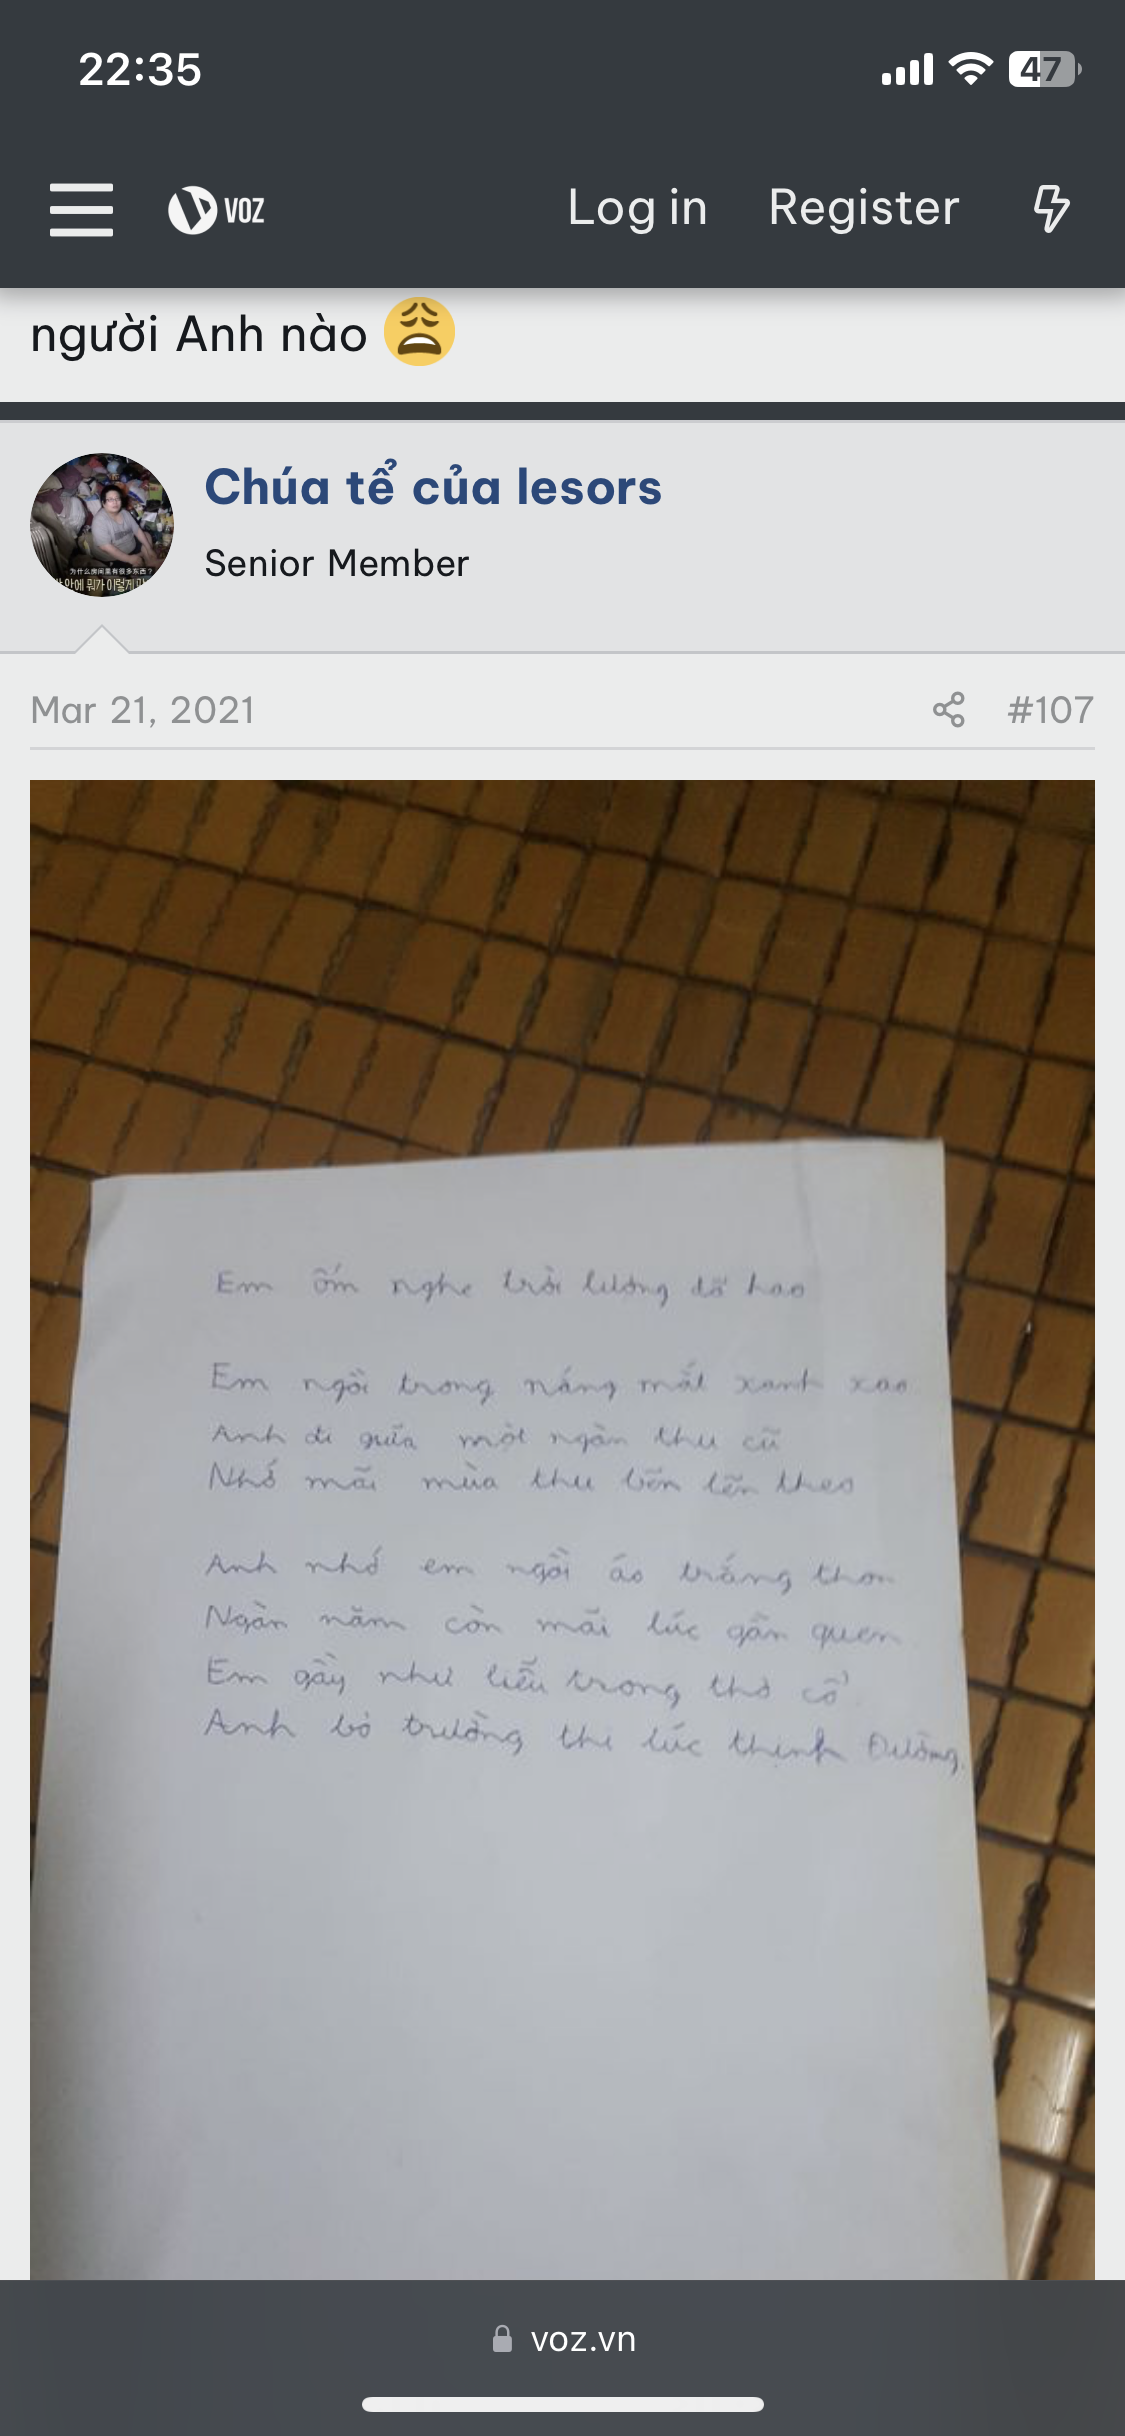 22:35
47
VOZ
Log in
Register
người Anh nào
Chúa tể của lesors
Senior Member
为什么房间里有很多东西?
안에 뭐가 이렇게
Mar 21, 2021
#107
Em ốm nghe trời lượng đã hao
Em ngồi trong nắng mắt xanh xao
Anh đi giữa một ngàn thu cũ
Nhớ mãi mùa thu bẽn lẽn theo
Anh nhớ em ngồi áo trắng thon
Ngàn năm còn mãi lúc gần quen
Em gầy như liễu trong thơ cổ
Anh bỏ trường thi lúc thịnh Đường.
voz.vn